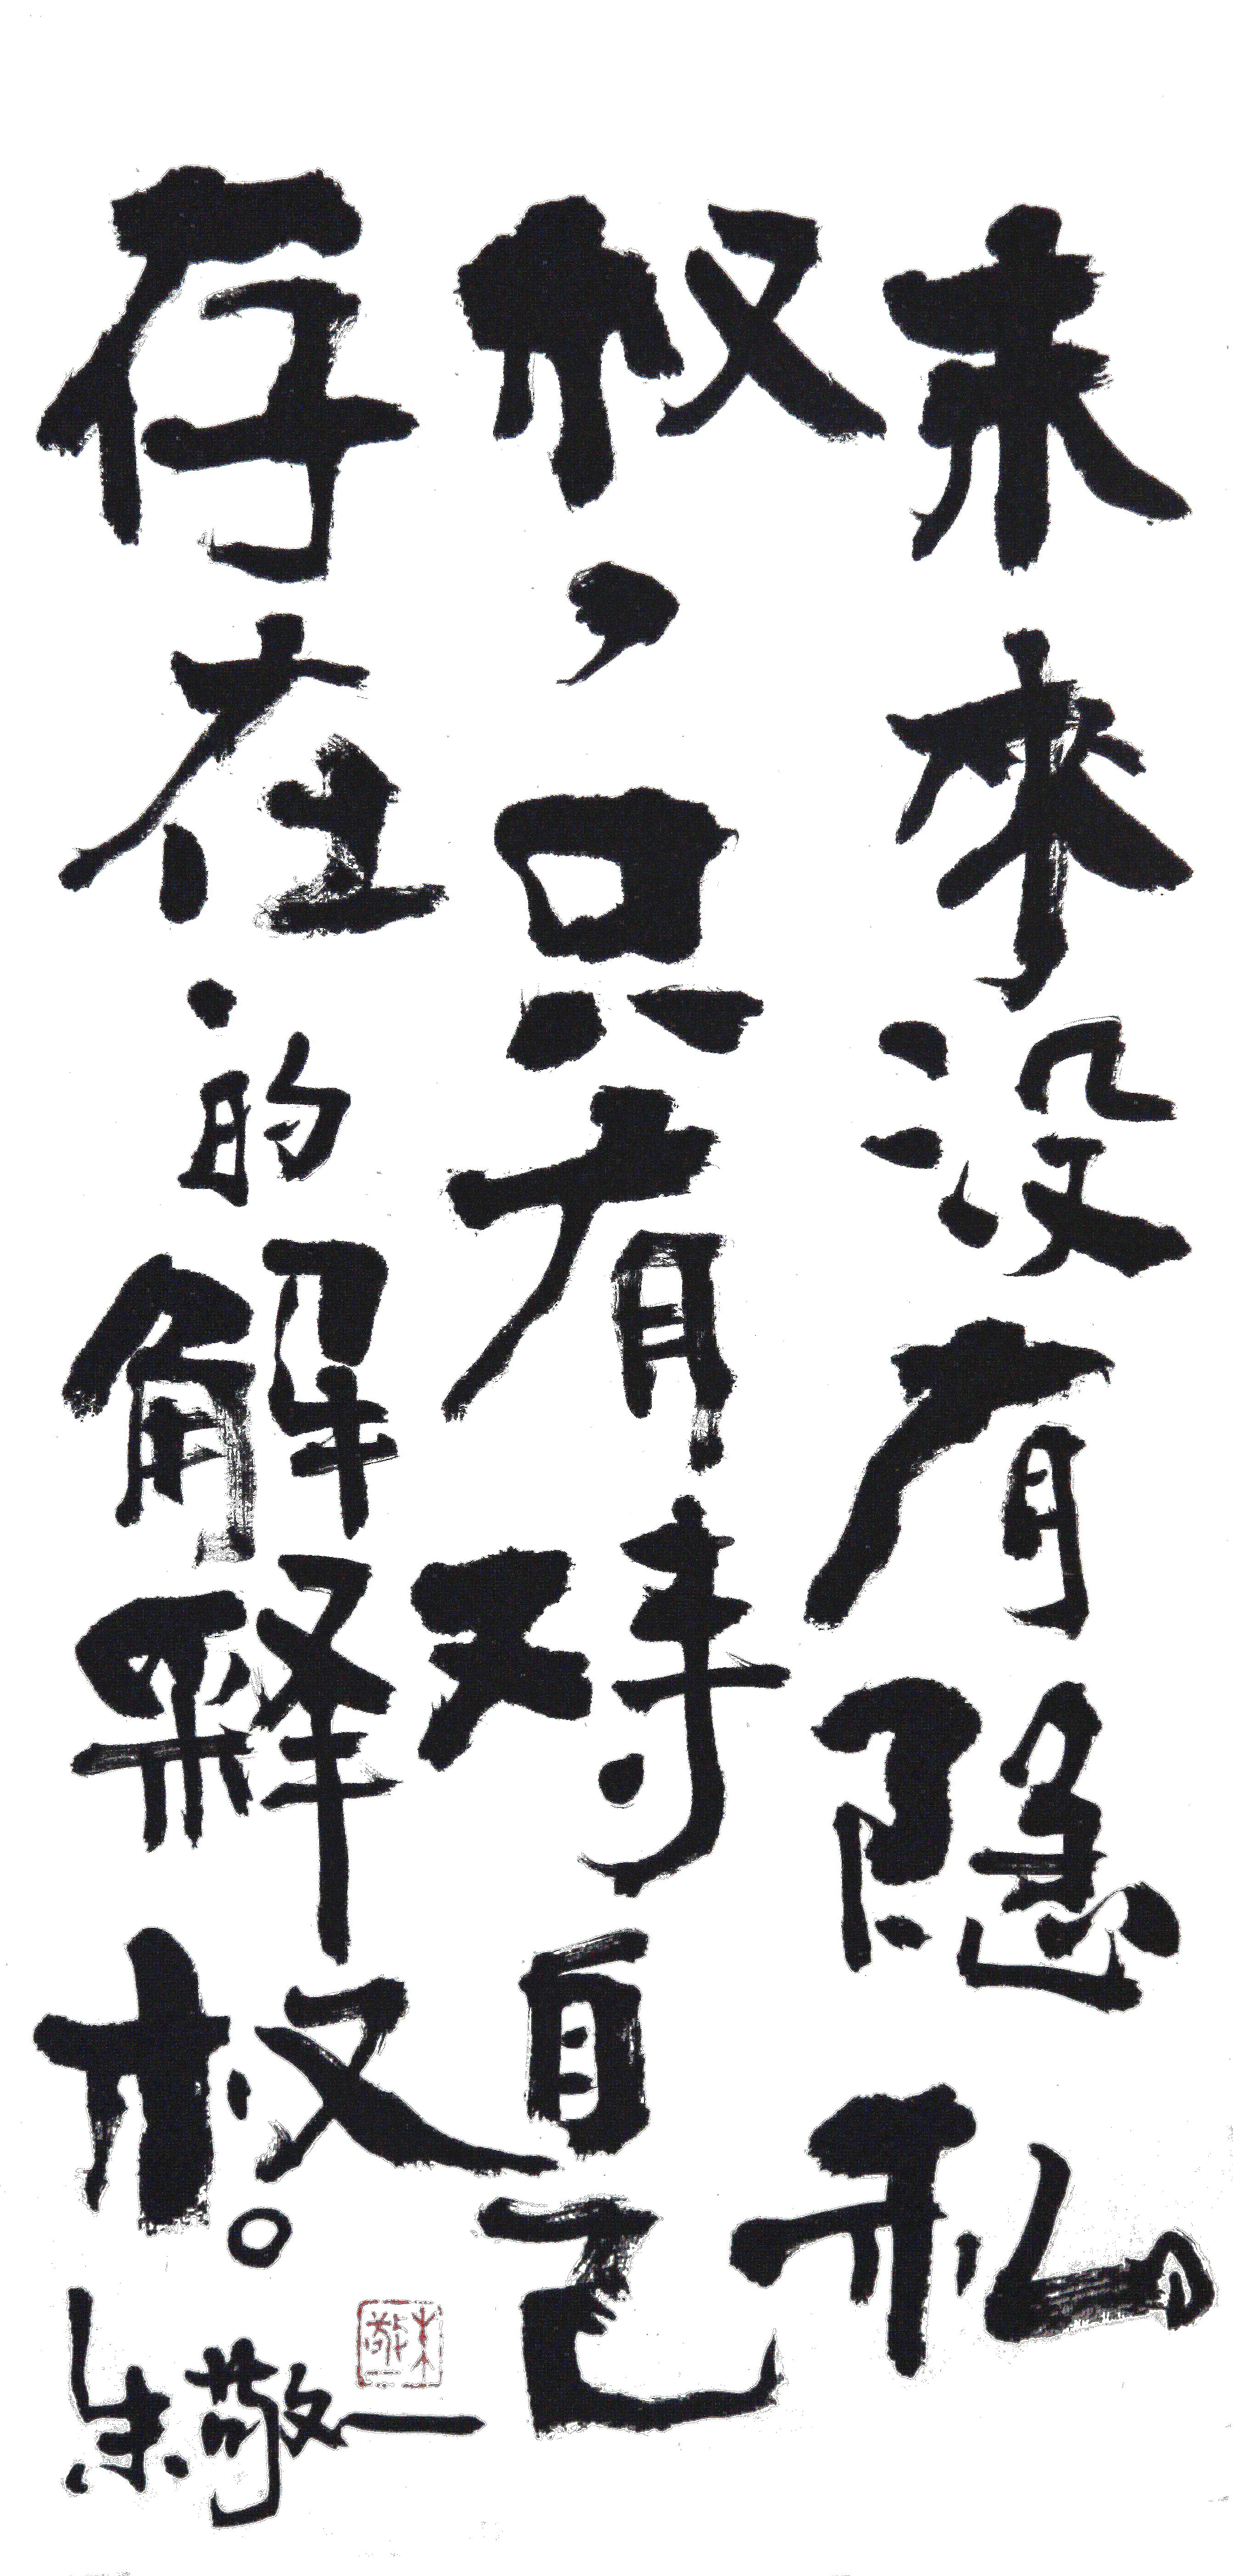 未來没有隐私
权，只有对自己
存在的解释权。
朱敬一
朱敬一